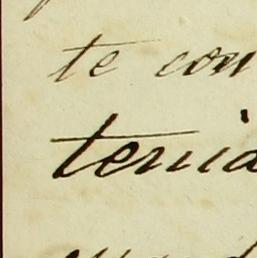 te con
tenid